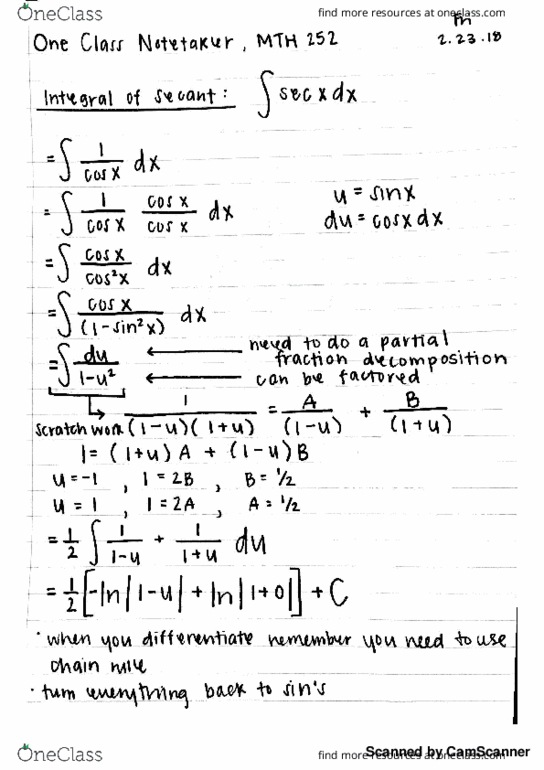 OneClass find more resources at oneclass.com
m
One Class Notetaker, MTH 252 2.23.18
Integral of secant: ∫ sec x dx
= ∫ 1/cos x dx
= ∫ 1/cos x cos x/cos x dx u = sin x
du = cosx dx
= ∫ cos x/cos²x dx
= ∫ cos x/(1-sin²x) dx
= ∫ du/1-u² ← need to do a partial
fraction decomposition
← can be factored
scratch work 1/(1-u)(1+u) = A/(1-u) + B/(1+u)
1 = (1+u) A + (1-u) B
u = -1 , 1 = 2B , B = 1/2
u = 1 , 1 = 2A , A = 1/2
= 1/2 ∫ 1/1-u + 1/1+u du
= 1/2 [-ln|1-u| + ln|1+0|] + C
· when you differentiate remember you need to use
chain rule
· turn everything back to sin's
OneClass find more resources at oneclass.com
Scanned by CamScanner